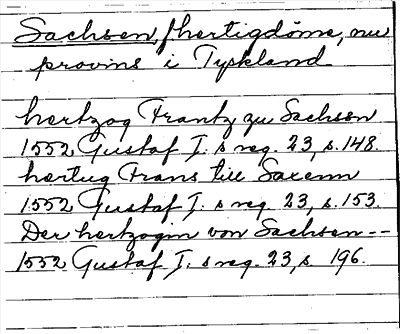 Sachsen, f hertigdöme, nu
provins i Tyskland
hertzog Frantz zu Sachsen
1552 Gustaf I:s reg. 23, s. 148.
hertug Frans till Saxenn
1552 Gustaf I:s reg. 23, s. 153.
Der hertzogin von Sachsen --
1552 Gustaf I:s reg. 23, s. 196.